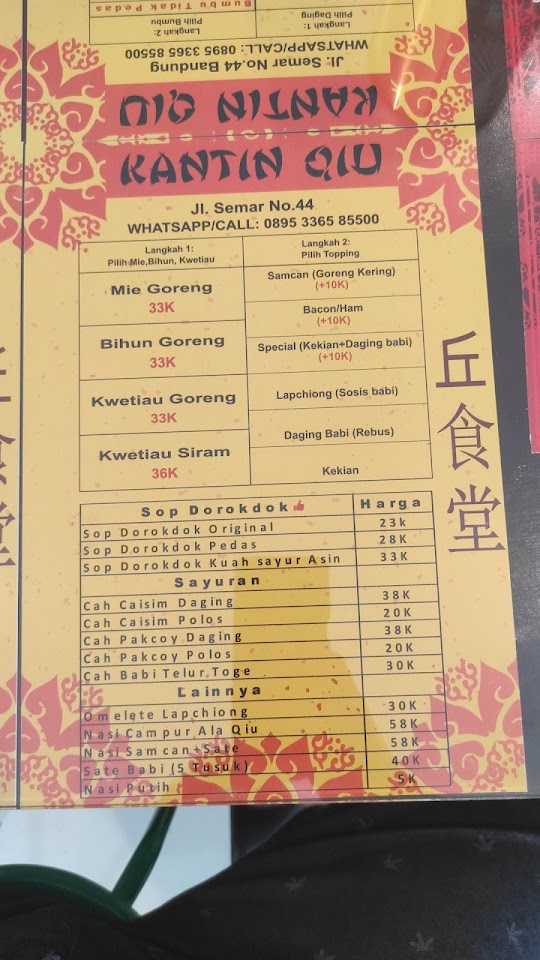 Bumbu Tidak Pedas
Langkah 1:
Pilih Daging
Langkah 2:
Pilih Bumbu
Jl. Semar No.44 Bandung
WHATSAPP/CALL: 0895 3365 85500
KANTIN QIU
KANTIN QIU
Jl. Semar No.44
WHATSAPP/CALL: 0895 3365 85500
Langkah 1:
Pilih Mie,Bihun, Kwetiau
Langkah 2:
Pilih Topping
Mie Goreng
33K
Bihun Goreng
33K
Kwetiau Goreng
33K
Kwetiau Siram
36K
Samcan (Goreng Kering)
(+10K)
Bacon/Ham
(+10K)
Special (Kekian+Daging babi)
(+10K)
Lapchiong (Sosis babi)
Daging Babi (Rebus)
Kekian
丘食堂
Sop Dorokdok Harga
Sop Dorokdok Original 23k
Sop Dorokdok Pedas 28K
Sop Dorokdok Kuah sayur Asin 33K
Sayuran
Cah Caisim Daging 38K
Cah Caisim Polos 20K
Cah Pakcoy Daging 38K
Cah Pakcoy Polos 20K
Cah Babi Telur,Toge 30K
Lainnya
Omelete Lapchiong 30K
Nasi Campur Ala Qiu 58K
Nasi Samcan+Sate 58K
Sate Babi (5 Tusuk) 40K
Nasi Putih 5K